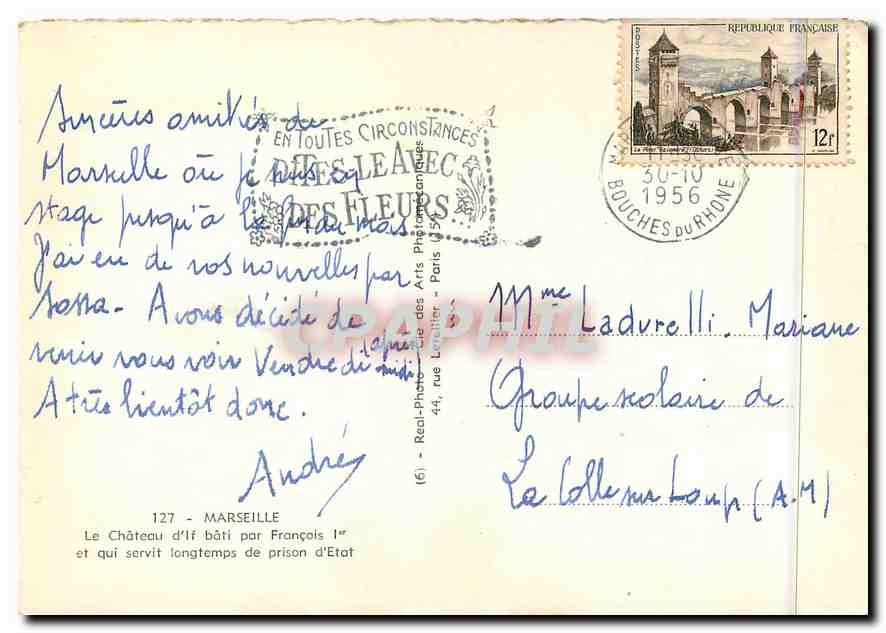 Sincères amitiés de
Marseille où je suis en
stage jusqu'à la fin du mois
J'ai eu de vos nouvelles par
Avons décidé de
venir vous voir Vendredi (après
midi)
A très bientôt donc.
André
127 - MARSEILLE
Le Château d'If bâti par François Ier
et qui servit longtemps de prison d'Etat
EN TOUTES CIRCONSTANCES
DITES-LE AVEC
DES FLEURS
(6) - Real-Photo - Cie des Arts Photomécaniques
44, rue Letellier - Paris (15e)
CPAPHIL
POSTES
REPUBLIQUE FRANÇAISE
12f
30-10
1956
BOUCHES DU RHONE
à Mme Ladurelli. Mariane
Groupe scolaire de
La Colle sur Loup (A.M)